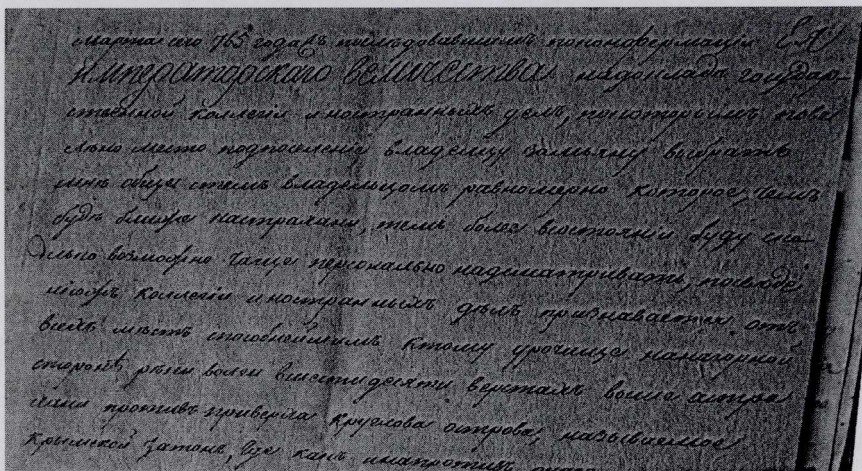 марта сего 765 года въ последовавшемъ по конфермации Ея
Императорского величества на докладъ государ
ственной коллегии иностранныхъ делъ, по которымъ пове
лено место под поселение владелцу Замьяну выбрать
мне обще с темъ владельцомъ равномерно которое, чемъ
будъ ближе к астрахани, темъ более в состоянии буду ско
лько возможно чаще персонально надсматривать,
коллегии иностранныхъ делъ признавается отъ
всехъ местъ способнейшимъ к тому урочище на нагорной
стороне реки волги в шестидесяти верстахъ выше астра
хани противъ приверха круглова острова, называемое
Крымской затонъ, где какъ и напротивъ